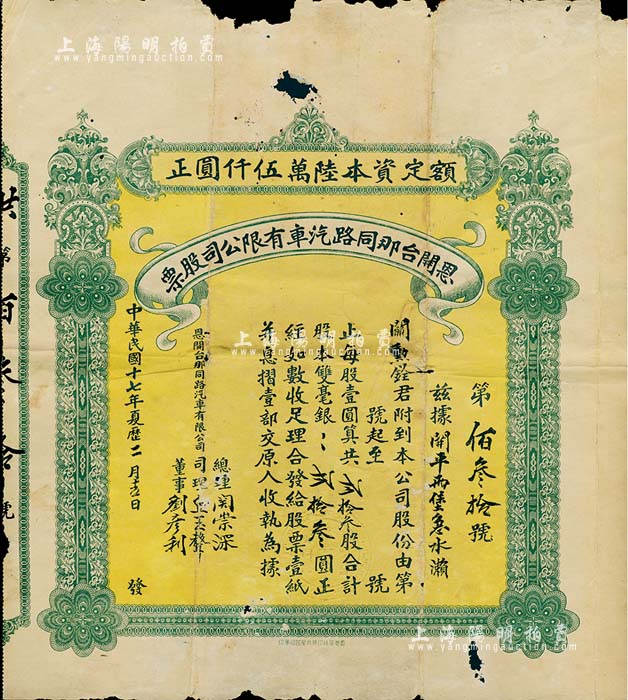 上海陽明拍賣
www.yangmingauction.com
額定資本陸萬伍仟圓正
恩開台那同路汽車有限公司股票
第佰叁拾號
茲據開平兩堡急水瀨
關 銓君附到本公司股份由第
號起至 號
止每股壹圓算共弍拾叁股合計
股本雙毫銀弍拾叁圓正
經如數收足理合發給股票壹紙
并息摺壹部交原人收執為據
恩開台那同路汽車有限公司
總理関崇深
司理
董事劉彥利
中華民國十七年夏歷二月 日
發
上海陽明拍賣
www.yangmingauction.com
上海陽明拍賣
www.yangmingauction.com